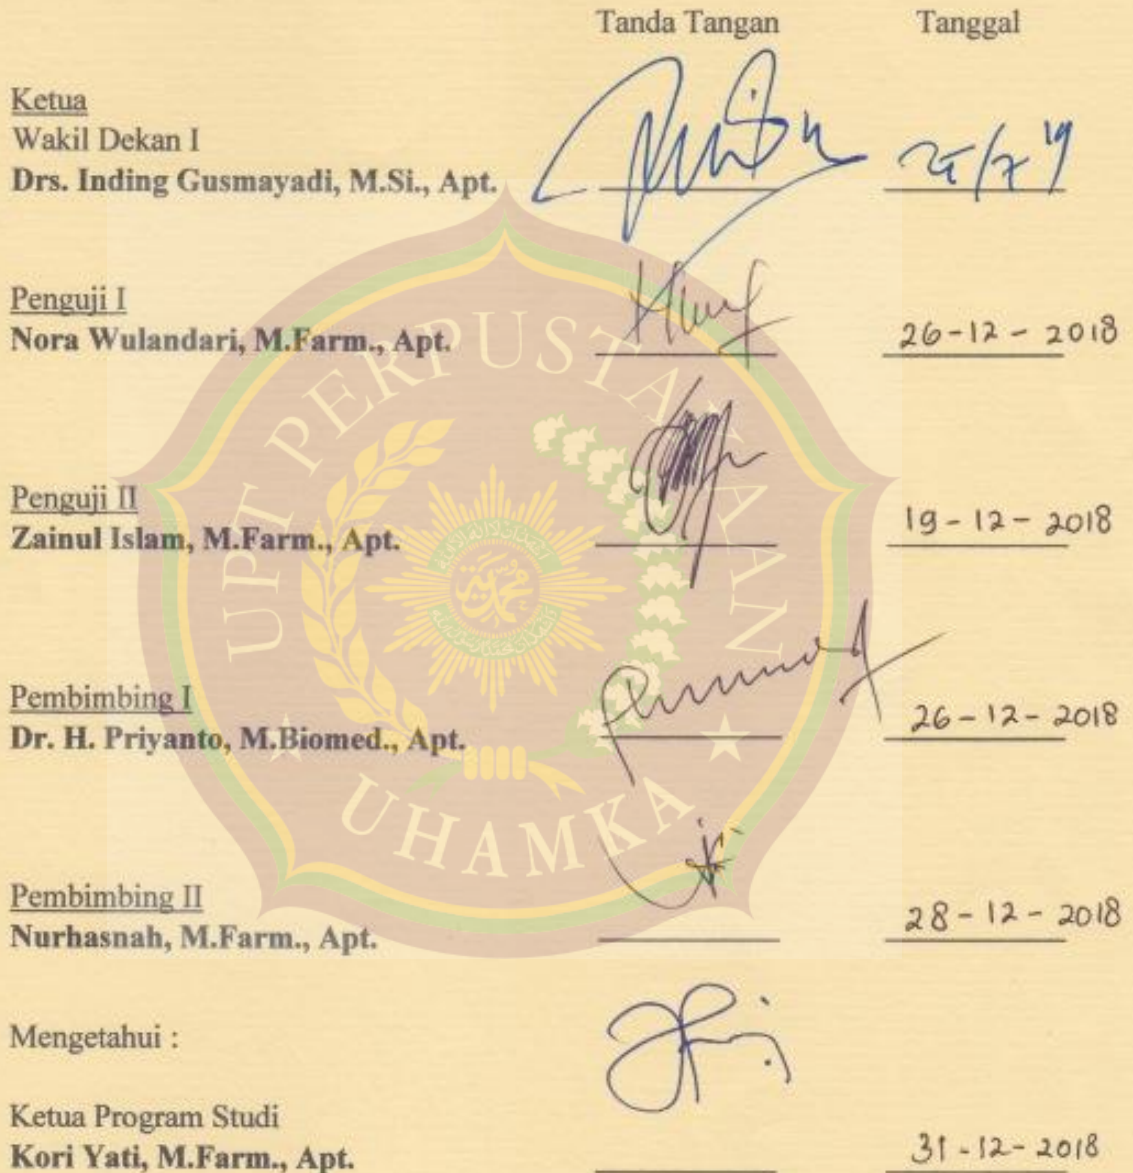 Tanda Tangan Tanggal
Ketua
Wakil Dekan I
Drs. Inding Gusmayadi, M.Si., Apt.
Penguji I
Nora Wulandari, M.Farm., Apt. 26-12-2018
Penguji II
Zainul Islam, M.Farm., Apt. 19-12-2018
Pembimbing I
Dr. H. Priyanto, M.Biomed., Apt. 26-12-2018
Pembimbing II
Nurhasnah, M.Farm., Apt. 28-12-2018
Mengetahui :
Ketua Program Studi
Kori Yati, M.Farm., Apt. 31-12-2018
UPT PERPUSTAKAAN
UHAMKA